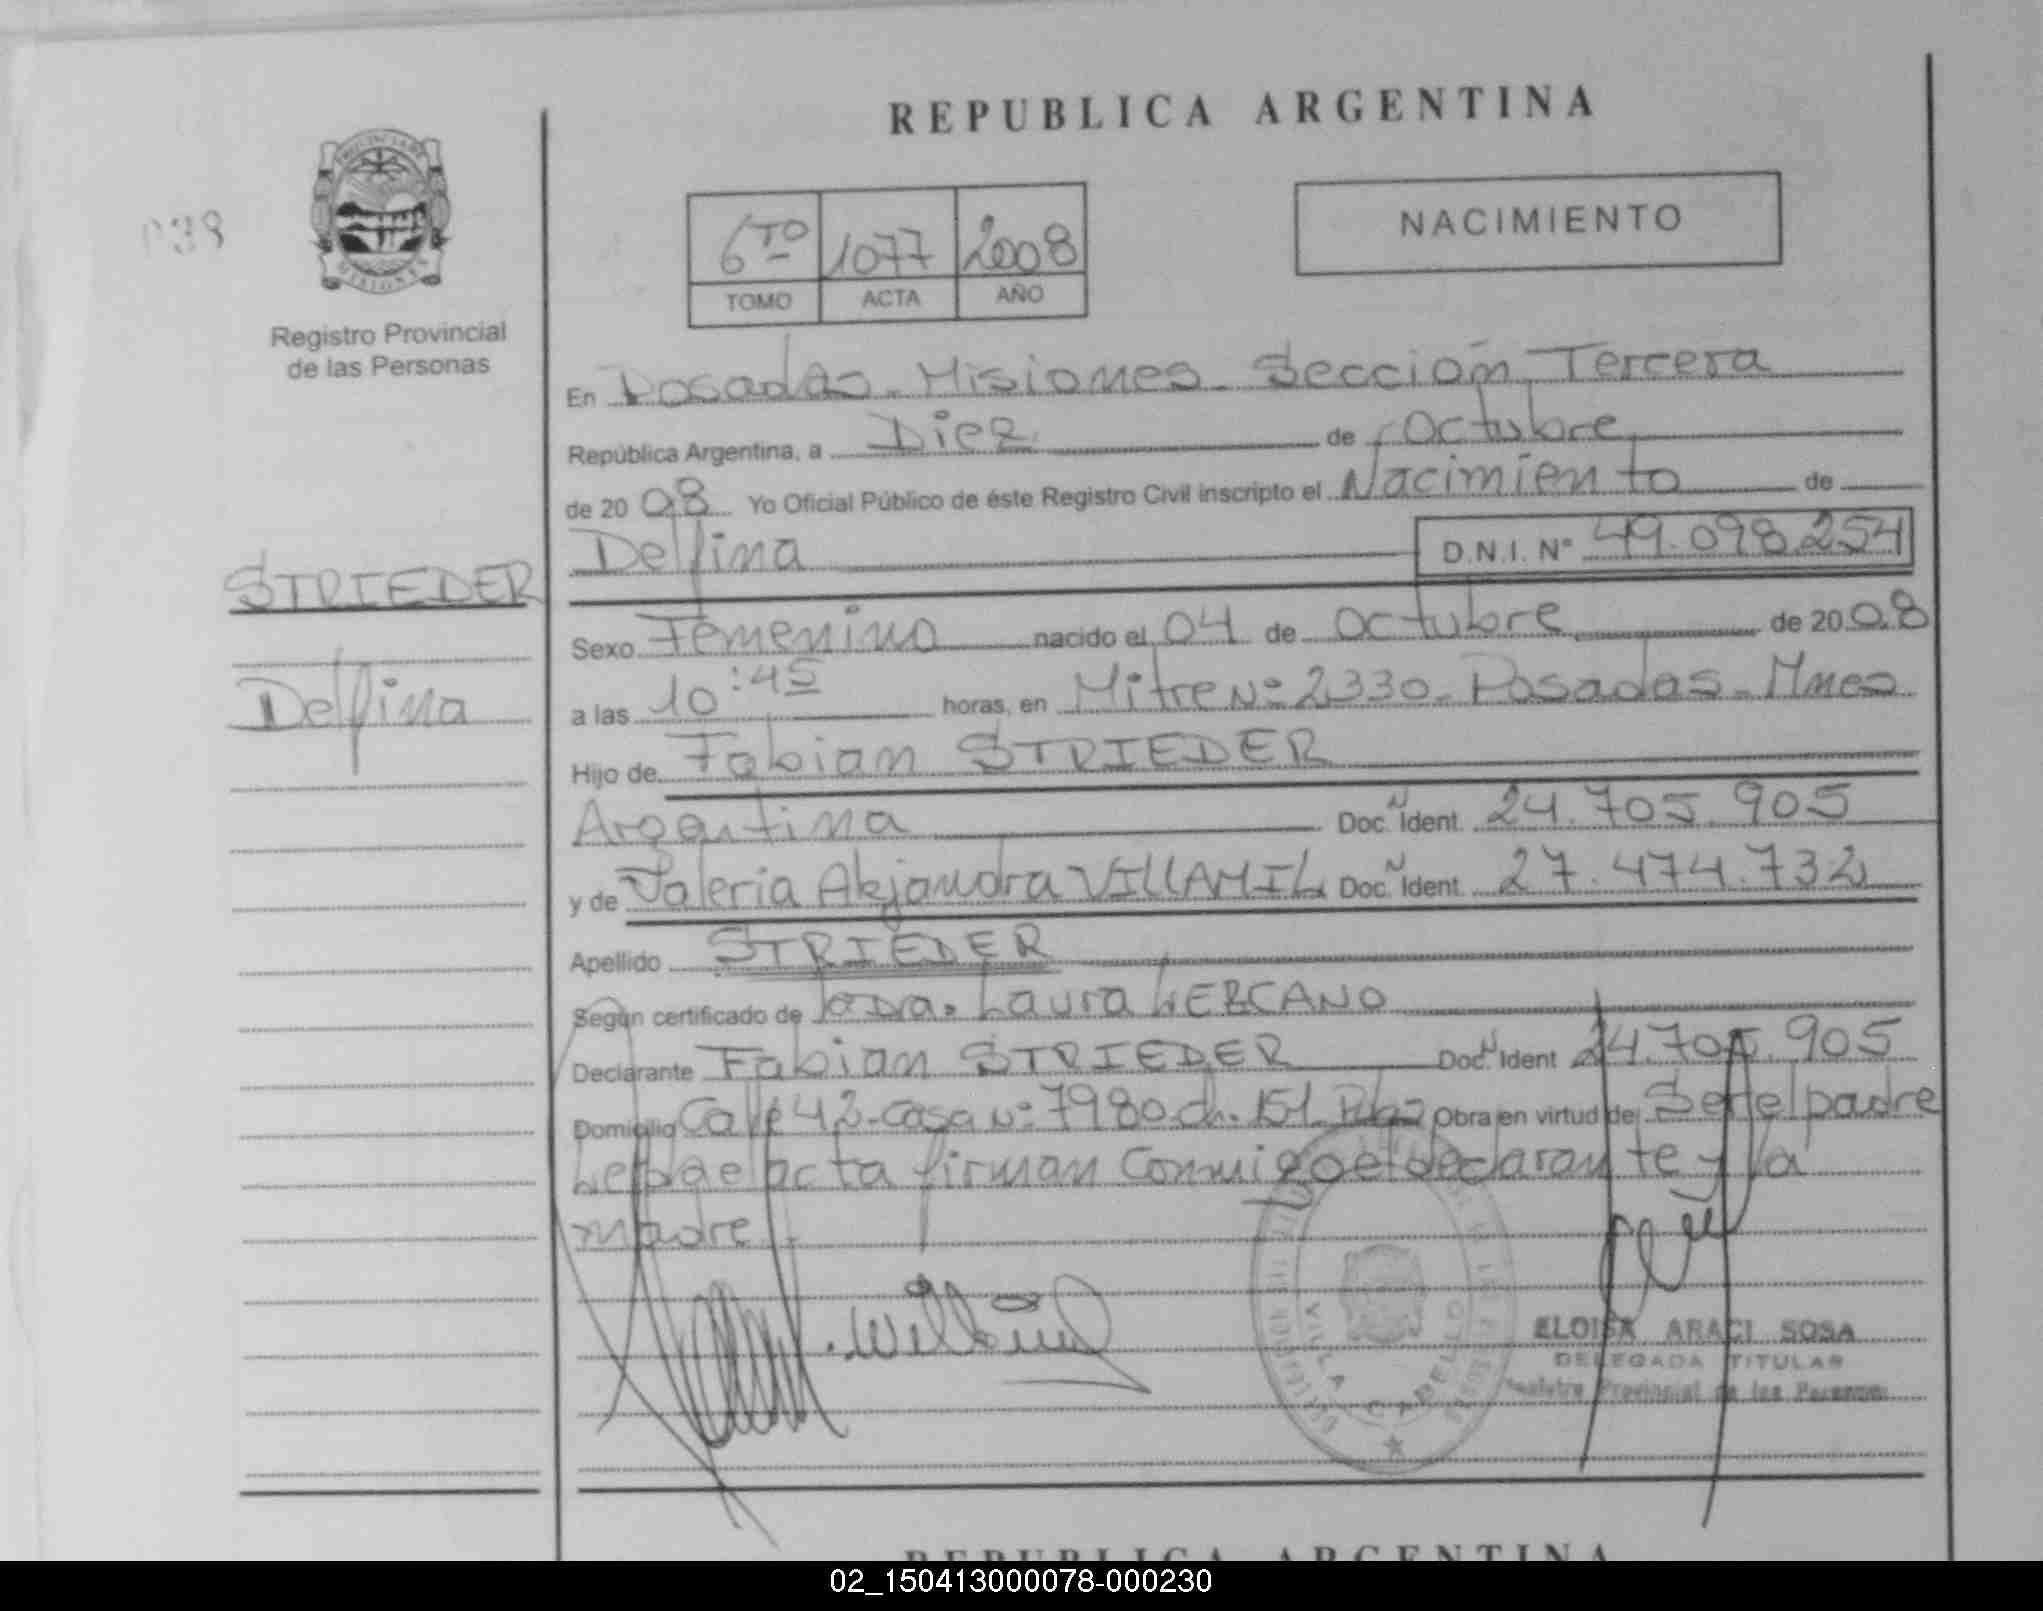 REPUBLICA ARGENTINA
NACIMIENTO
6TO 1077 2008
TOMO ACTA AÑO
Registro Provincial
de las Personas
En Posadas - Misiones - Sección Tercera
República Argentina, a Diez de Octubre
de 2008 Yo Oficial Público de éste Registro Civil inscripto el Nacimiento de
Delfina D.N.I. Nº 49.098.254
STRIEDER
Delfina
Sexo Femenino nacido el 04 de Octubre de 2008
a las 10:45 horas, en Mitre Nº 2330 - Posadas - Mnes
Hijo de Fabian STRIEDER
Argentina Doc. Ident. 24.705.905
y de Valeria Alejandra VILLAMIL Doc. Ident. 27.474.732
Apellido STRIEDER
Según certificado de la Dra. Laura
Declarante Fabian STRIEDER Doc. Ident 24.705.905
Domicilio Calle 42 - Casa Nº 7980 ch. 151 Obra en virtud de Ser el padre
acta firman Conmigo el declarante y la
madre
ELOISA ARACI SOSA
DELEGADA TITULAR
Registro Provincial de las Personas
VILLA CABELLO
REPUBLICA ARGENTINA
02_150413000078-000230